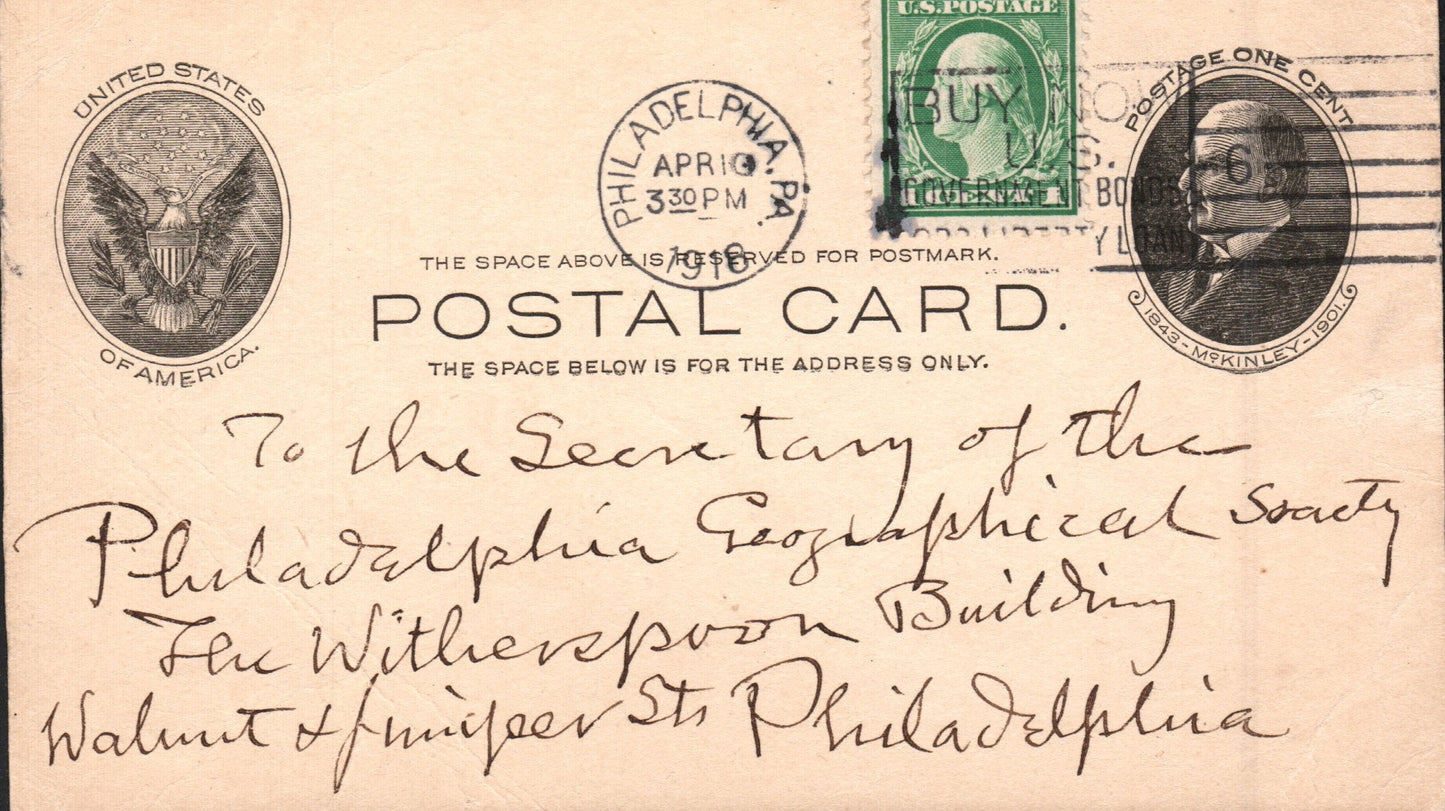 U.S. POSTAGE
UNITED STATES
OF AMERICA.
PHILADELPHIA, PA.
APR 10
3 30 PM
1918
BUY NOW
U.S.
GOVERNMENT BONDS
LIBERTY LOAN
6
1
POSTAGE ONE CENT
1843 - McKINLEY - 1901.
THE SPACE ABOVE IS RESERVED FOR POSTMARK.
POSTAL CARD.
THE SPACE BELOW IS FOR THE ADDRESS ONLY.
To the Secretary of the
Philadelphia Geographical Society
The Witherspoon Building
Walnut & Juniper Sts Philadelphia